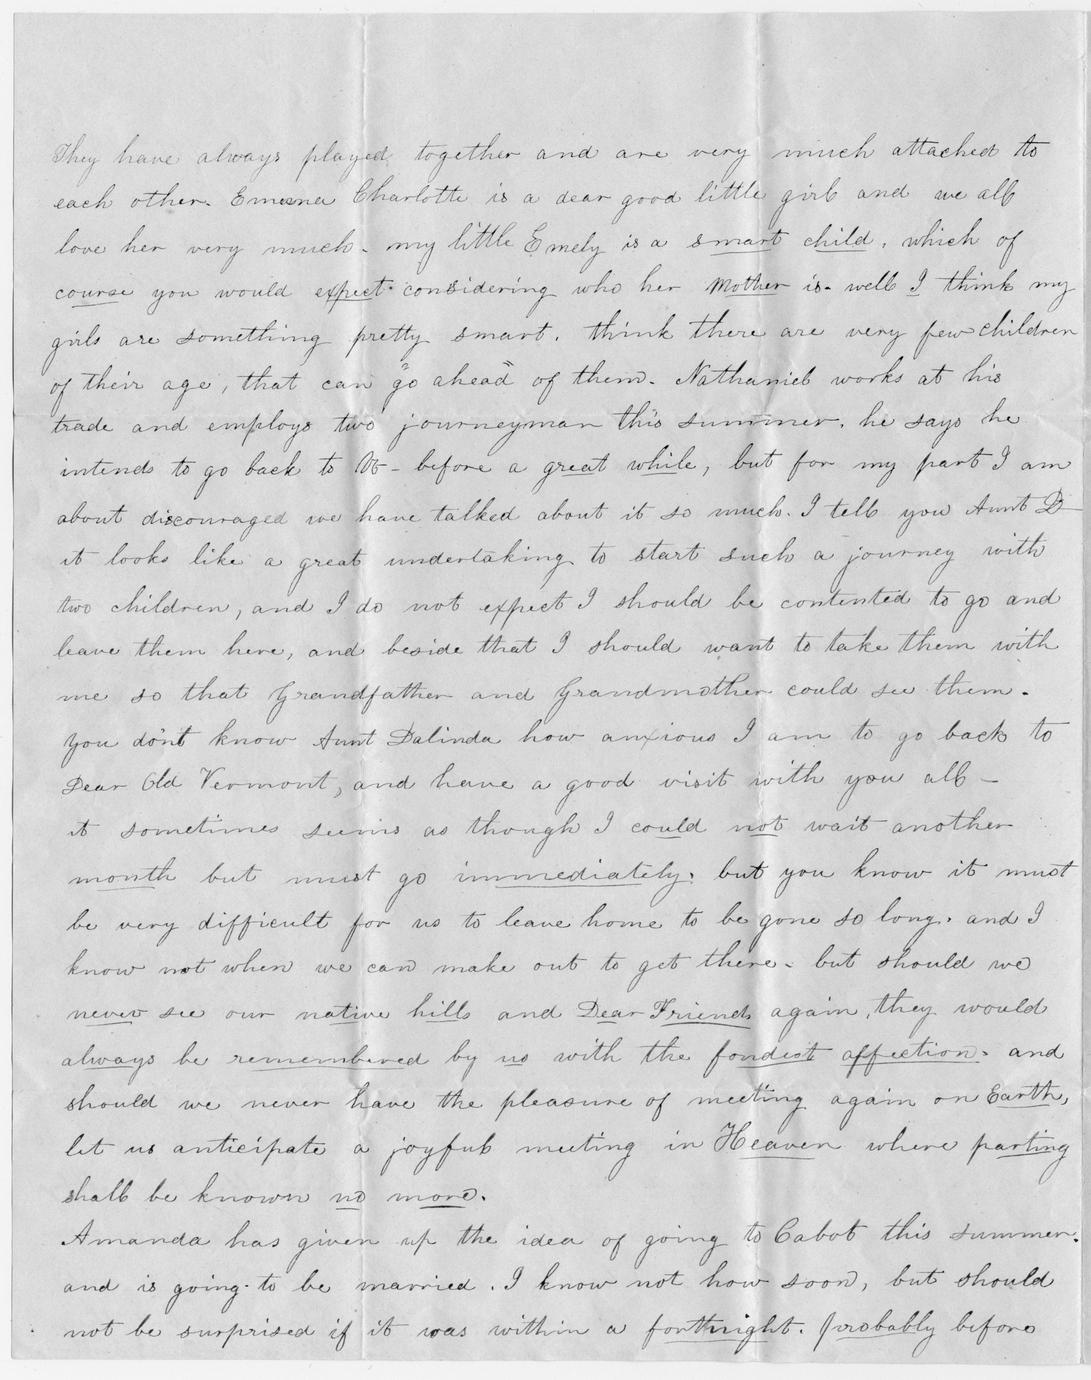 They have always played together and are very much attached to
each other. Emma Charlotte is a dear good little girl and we all
love her very much. my little Emely is a smart child, which of
course you would expect considering who her Mother is. well I think my
girls are something pretty smart. think there are very few children
of their age, that can "go ahead" of them. Nathaniel works at his
trade and employs two journeyman this summer. he says he
intends to go back to Vt - before a great while, but for my part I am
about discouraged we have talked about it so much. I tell you Aunt D
it looks like a great undertaking to start such a journey with
two children, and I do not expect I should be contented to go and
leave them here, and beside that I should want to take them with
me so that Grandfather and Grandmother could see them.
you don't know Aunt Dalinda how anxious I am to go back to
Dear Old Vermont, and have a good visit with you all -
it sometimes seems as though I could not wait another
month but must go immediately. but you know it must
be very difficult for us to leave home to be gone so long. and I
know not when we can make out to get there. but should we
never see our native hills and Dear Friends again, they would
always be remembered by us with the fondest affection. and
should we never have the pleasure of meeting again on Earth,
let us anticipate a joyful meeting in Heaven where parting
shall be known no more.
Amanda has given up the idea of going to Cabot this summer.
and is going to be married. I know not how soon, but should
not be surprised if it was within a forthnight. probably before